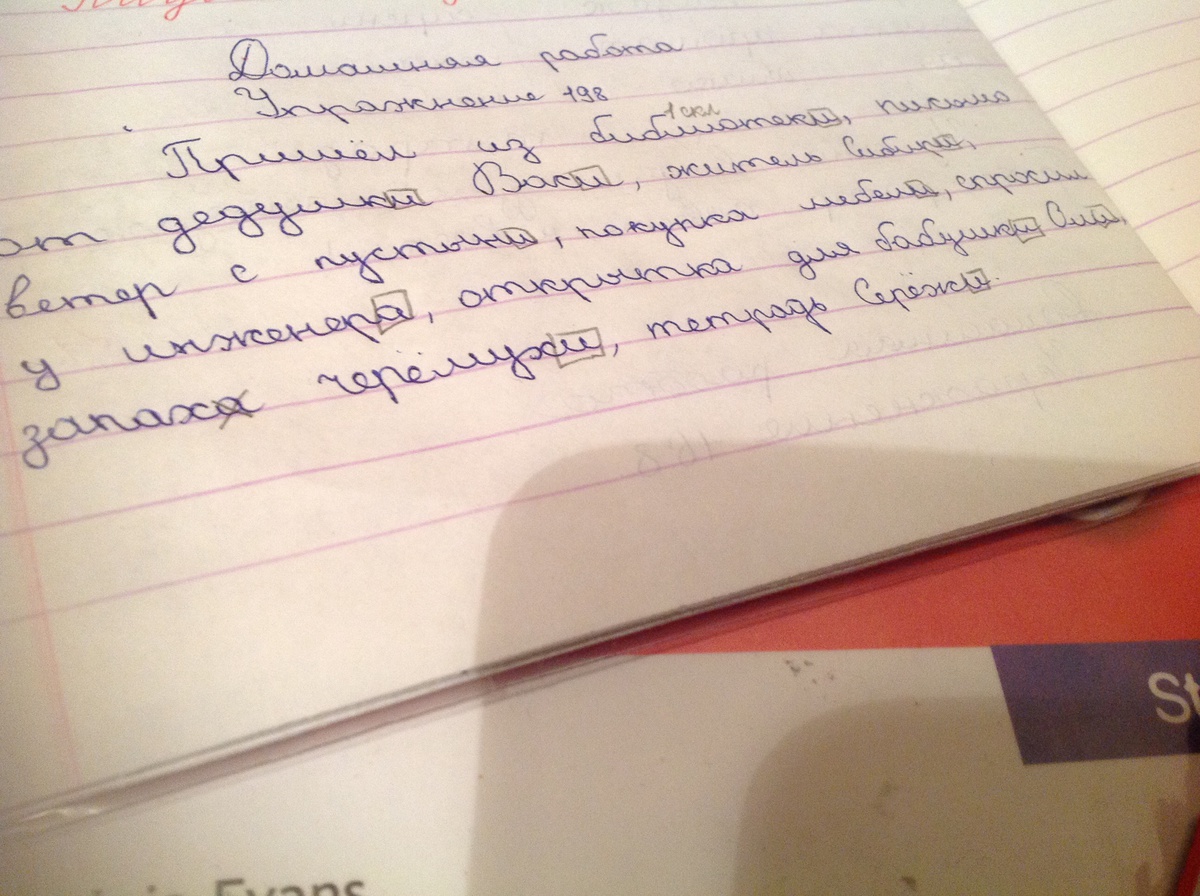 Домашная работа
Упражнение 198
1 скл
Пришёл из библиотеки, письмо
от дедушки Васи, житель Сибири,
ветер с пустыни, покупка мебели, спросил
у инженера, открытка для бабушки Оли,
запах черёмухи, тетрадь Серёжи.
St
Evans